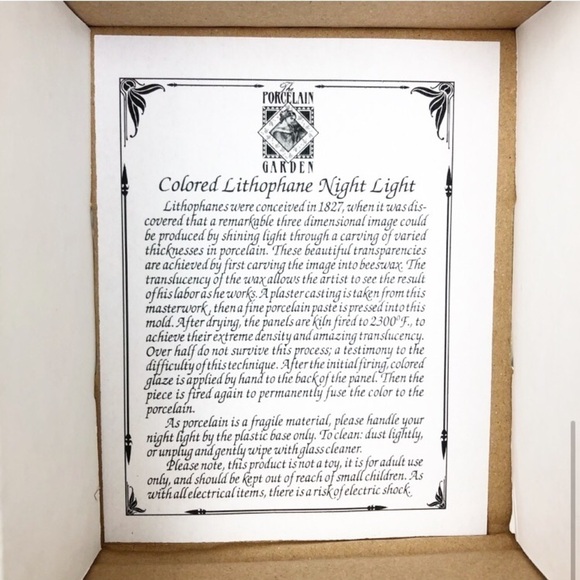 The
PORCELAIN
GARDEN
Colored Lithophane Night Light
Lithophanes were conceived in 1827, when it was dis-
covered that a remarkable three dimensional image could
be produced by shining light through a carving of varied
thicknesses in porcelain. These beautiful transparencies
are achieved by first carving the image into beeswax. The
translucency of the wax allows the artist to see the result
of his labor as he works. A plaster casting is taken from this
masterwork, then a fine porcelain paste is pressed into this
mold. After drying, the panels are kiln fired to 2300°F., to
achieve their extreme density and amazing translucency.
Over half do not survive this process; a testimony to the
difficulty of this technique. After the initial firing, colored
glaze is applied by hand to the back of the panel. Then the
piece is fired again to permanently fuse the color to the
porcelain.
As porcelain is a fragile material, please handle your
night light by the plastic base only. To clean: dust lightly,
or unplug and gently wipe with glass cleaner.
Please note, this product is not a toy, it is for adult use
only, and should be kept out of reach of small children. As
with all electrical items, there is a risk of electric shock.